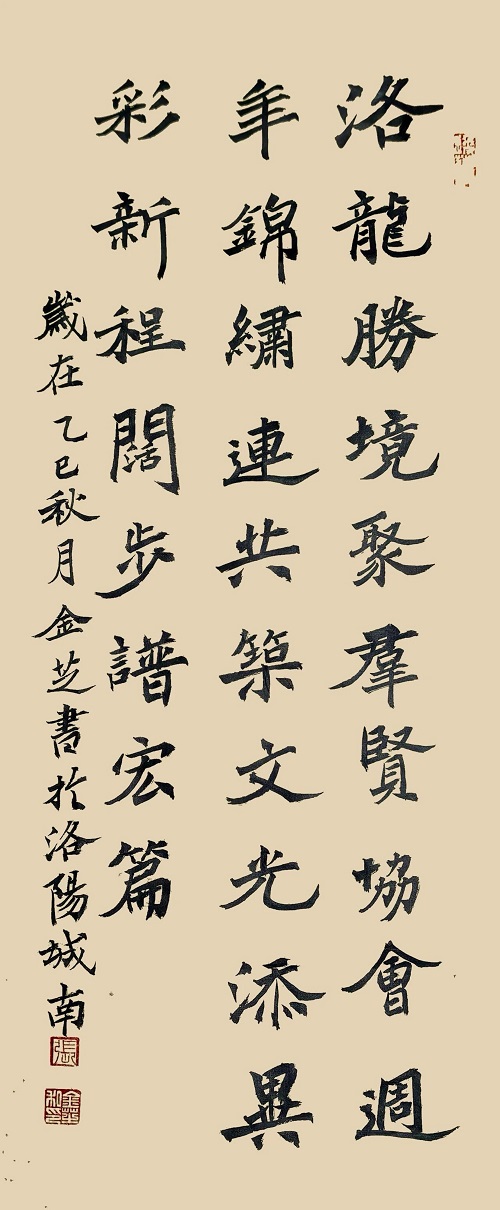 洛龍勝境聚羣賢協會週
年錦繡連共築文光添異
彩新程闊步譜宏篇
歲在乙巳秋月金芝書於洛陽城南
張